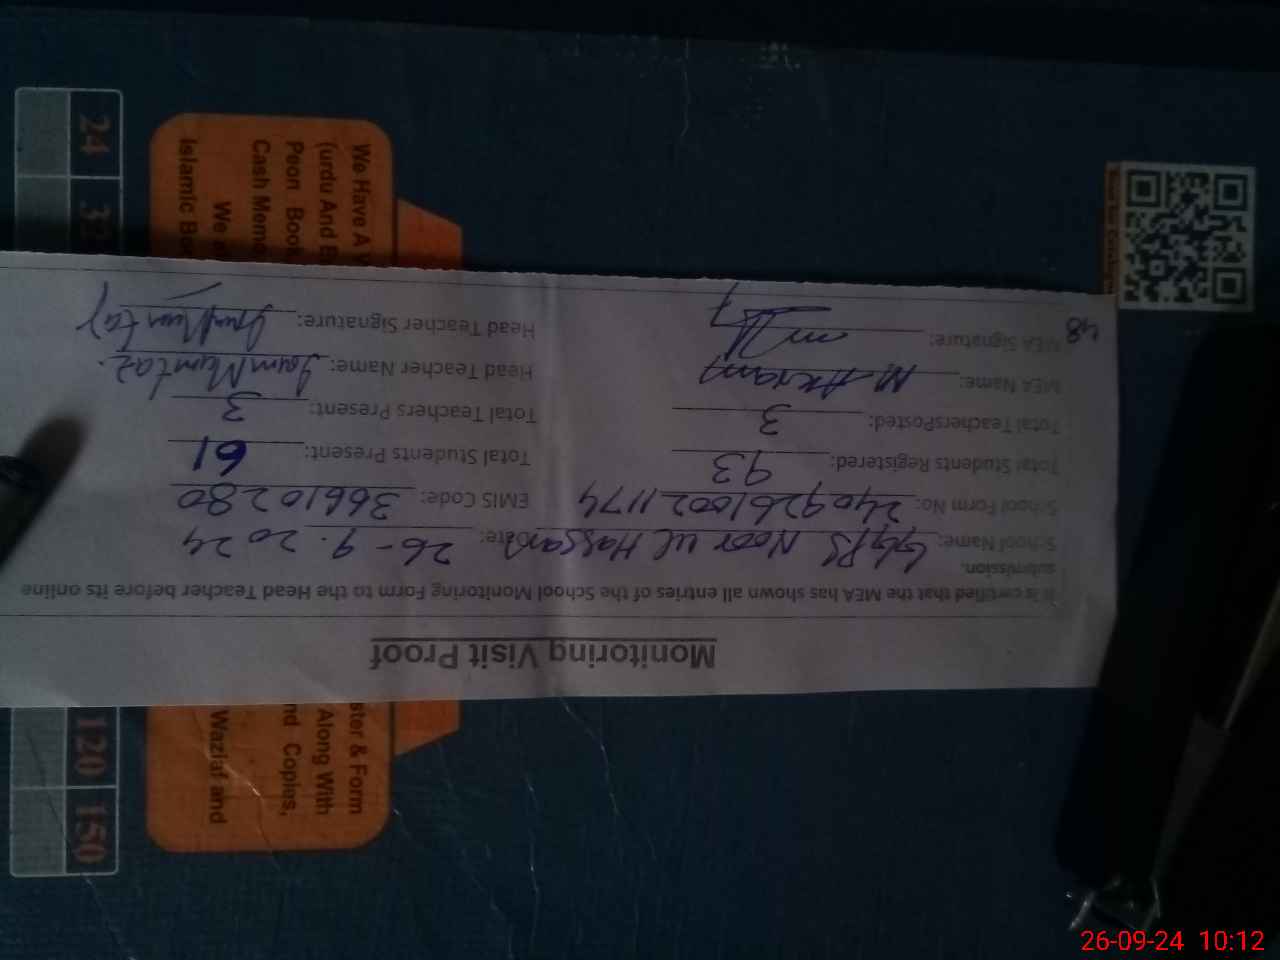 Monitoring Visit Proof
It is certified that the MEA has shown all entries of the School Monitoring Form to the Head Teacher before its online
submission.
School Name: GGPS Noor ul Hassan Date: 26-9-2024
School Form No: 2409261002 1174 EMIS Code: 36610280
Total Students Registered: 93 Total Students Present: 61
Total TeachersPosted: 3 Total Teachers Present: 3
MEA Name: M. Akram Head Teacher Name: Mumtaz
MEA Signature: Head Teacher Signature:
48
We Have A
(urdu And
Peon Book
Cash Memo
We
Islamic
ster & Form
Along With
nd Copies,
Waziaf and
24
120
150
26-09-24 10:12